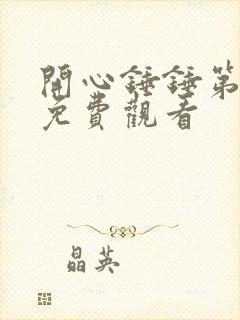 開心錘錘第
免費觀看
晶英